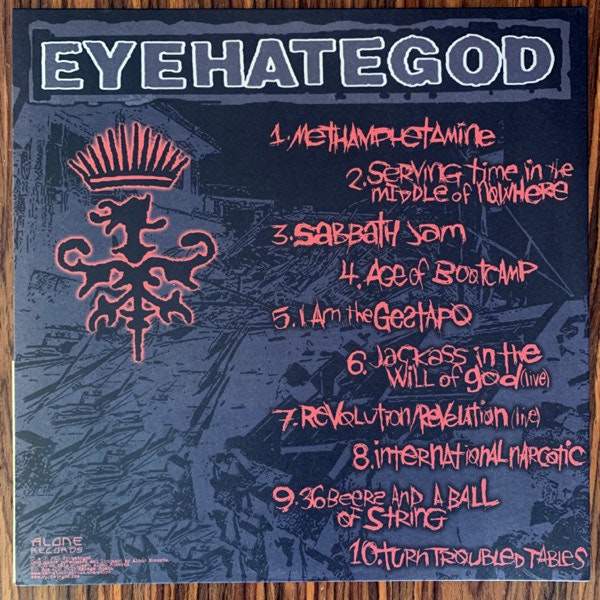 EYEHATEGOD
1. METHAMPHETAMINE
2. SERVING TIME IN THE
MIDDLE OF NOWHERE
3. SABBATH JAM
4. AGE OF BOOTCAMP
5. I AM THE GESTAPO
6. JACKASS IN THE
WILL OF GOD (LIVE)
7. REVOLUTION/REVELUTION (LIVE)
8. INTERNATIONAL NARCOTIC
9. 36 BEERS AND A BALL
OF STRING
10. TURN TROUBLED TABLES
ALONE
RECORDS